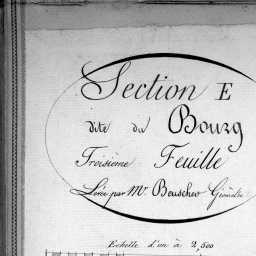 Section E
dite du Bourg
Troisième Feuille
Levée par Mr. Beuscher Géomètre
Echelle d'un à 2,500